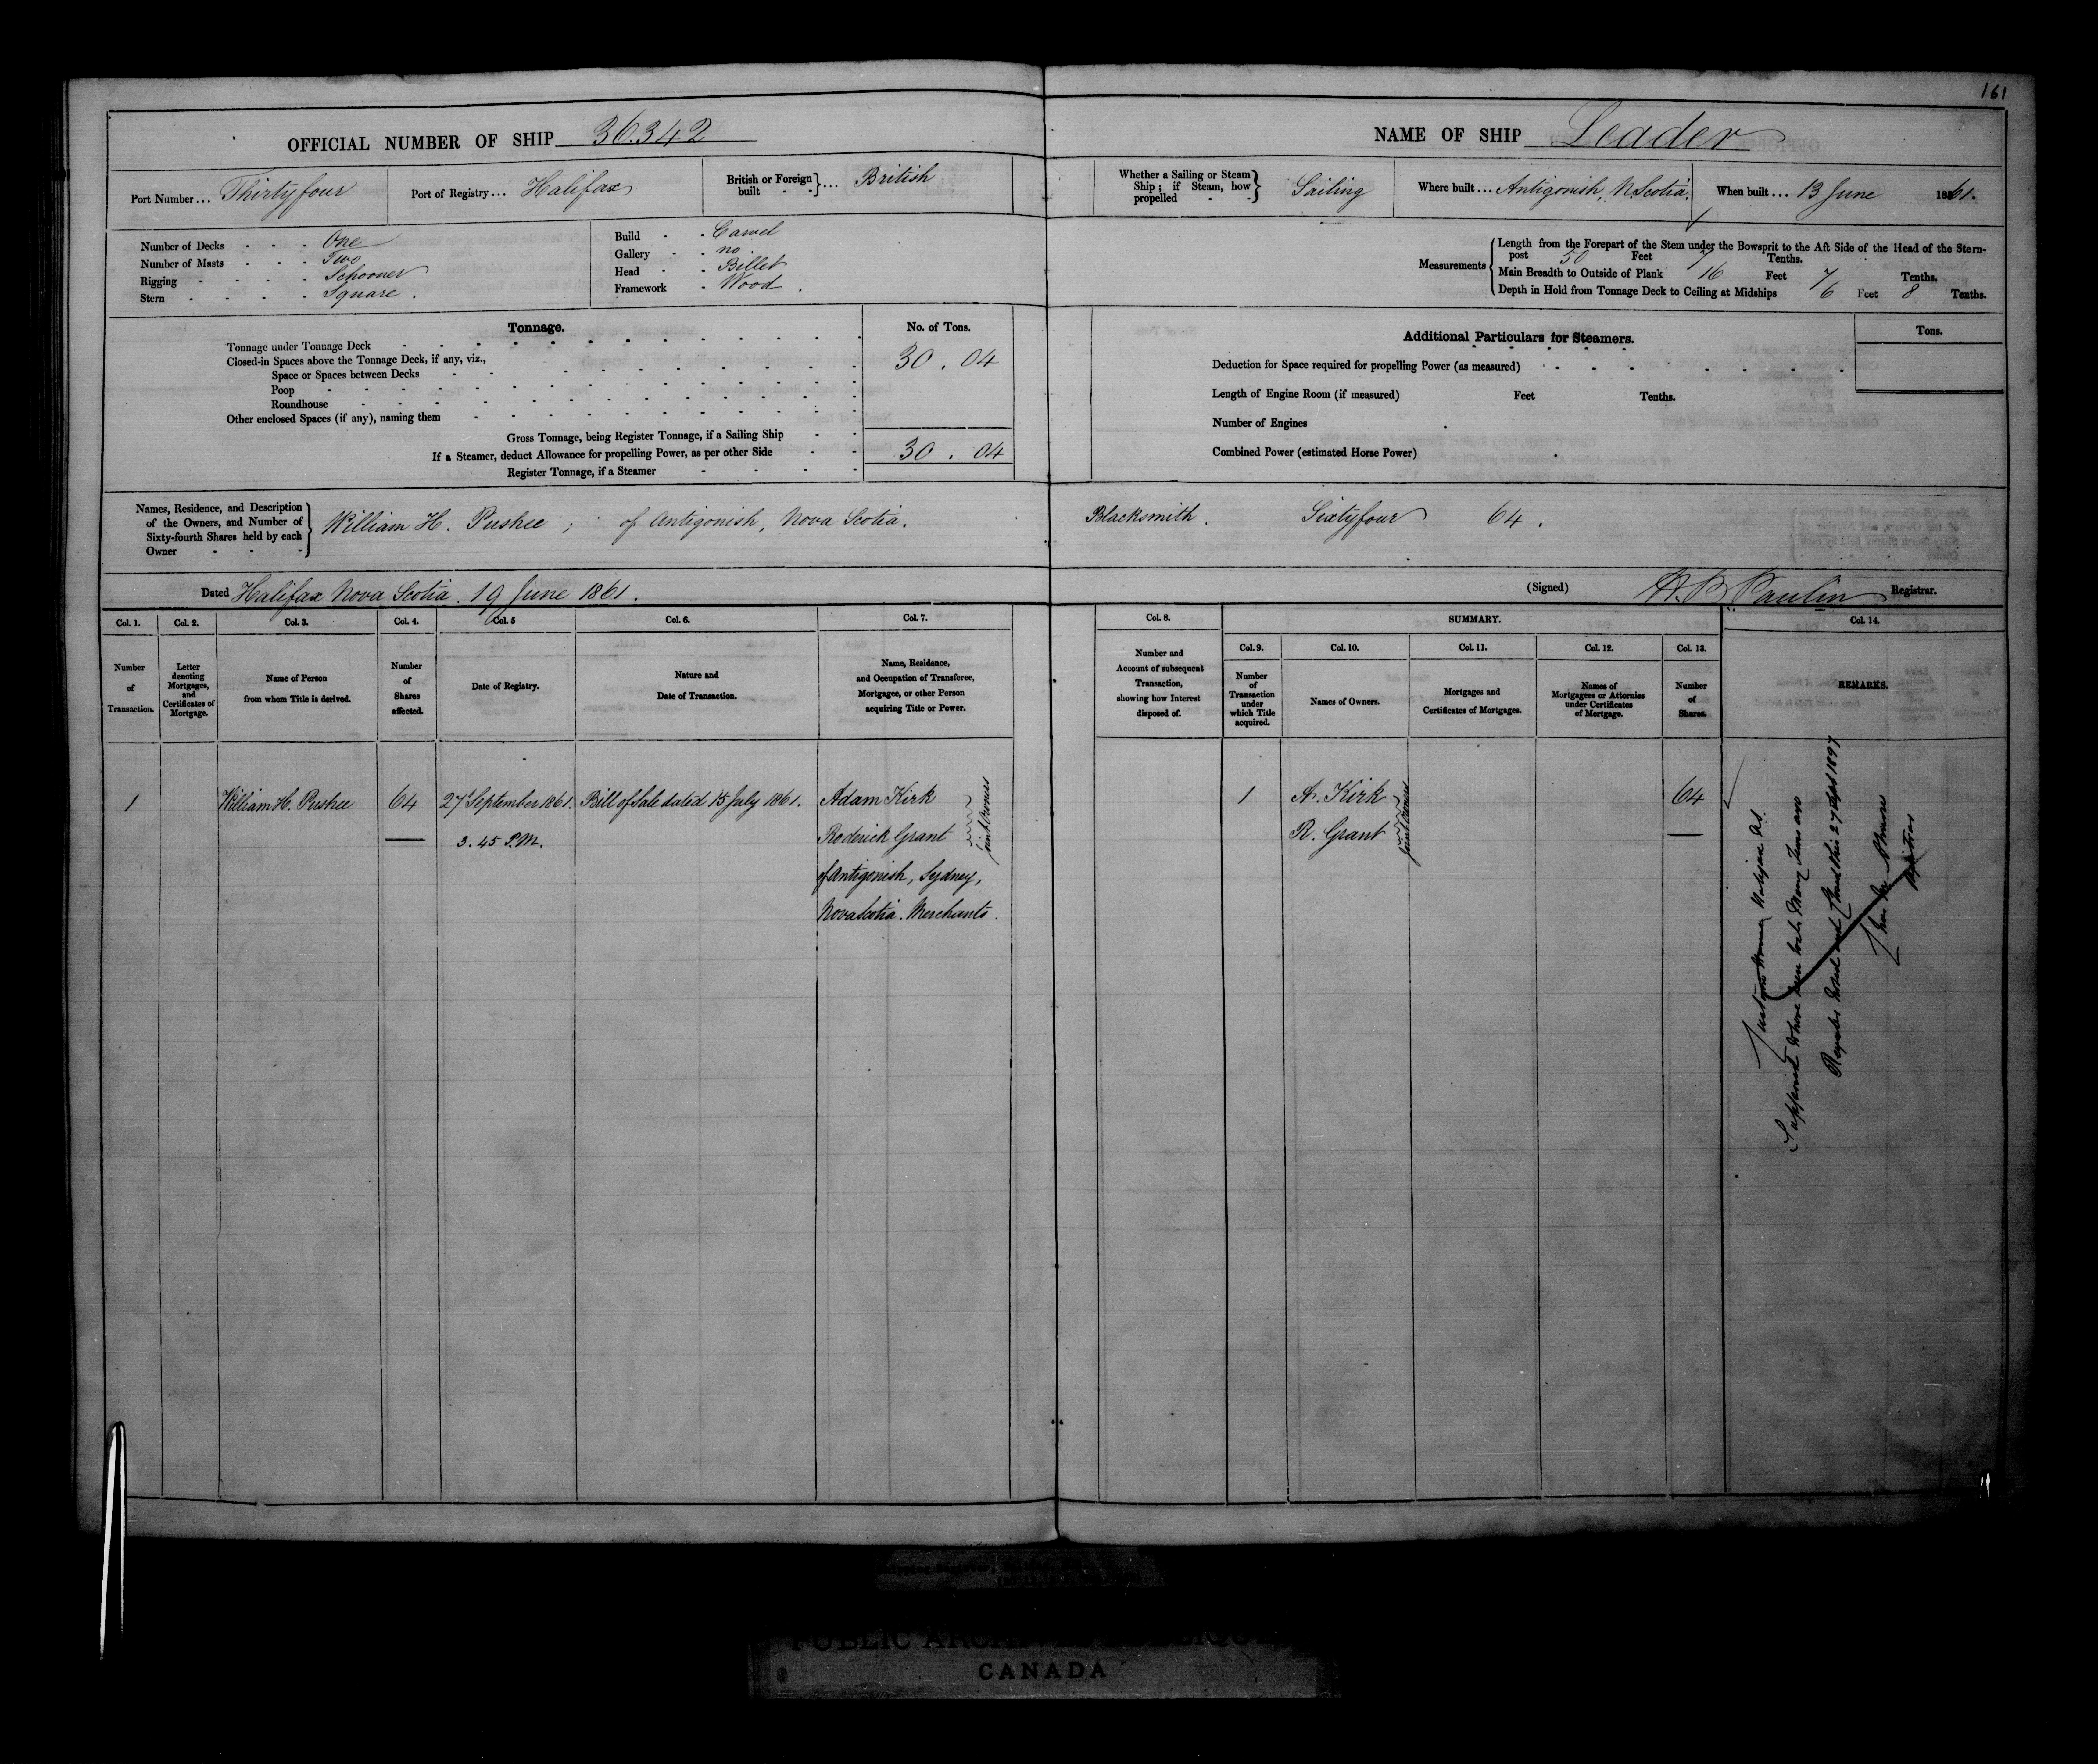 161
OFFICIAL NUMBER OF SHIP 36.342
NAME OF SHIP Leader
Port Number... Thirtyfour
Port of Registry... Halifax
British or Foreign built - - }... British
Whether a Sailing or Steam Ship; if Steam, how propelled - - } Sailing
Where built... Antigonish, N. Scotia.
When built... 13 June 1861.
Number of Decks - - - One
Number of Masts - - - Two
Rigging - - - - Schooner
Stern - - - - Square.
Build - - Carvel
Gallery - - no
Head - - Billet
Framework - Wood.
Measurements
Length from the Forepart of the Stem under the Bowsprit to the Aft Side of the Head of the Stern-
post 50 Feet 7 Tenths.
Main Breadth to Outside of Plank 16 Feet 7 Tenths.
Depth in Hold from Tonnage Deck to Ceiling at Midships 6 Feet 8 Tenths.
Tonnage.
No. of Tons.
Tonnage under Tonnage Deck
Closed-in Spaces above the Tonnage Deck, if any, viz.,
30.04
Space or Spaces between Decks
Poop
Roundhouse
Other enclosed Spaces (if any), naming them
Gross Tonnage, being Register Tonnage, if a Sailing Ship
If a Steamer, deduct Allowance for propelling Power, as per other Side
30.04
Register Tonnage, if a Steamer
Additional Particulars for Steamers.
Tons.
Deduction for Space required for propelling Power (as measured)
Length of Engine Room (if measured) Feet Tenths.
Number of Engines
Combined Power (estimated Horse Power)
Names, Residence, and Description
of the Owners, and Number of
Sixty-fourth Shares held by each
Owner - - -
William H. Pushee; of Antigonish, Nova Scotia. Blacksmith. Sixtyfour 64.
Dated Halifax Nova Scotia. 19 June 1861.
(Signed) Paulin Registrar.
Col. 1.
Number
of
Transaction.
Col. 2.
Letter
denoting
Mortgages,
and
Certificates of
Mortgage.
Col. 3.
Name of Person
from whom Title is derived.
Col. 4.
Number
of
Shares
affected.
Col. 5
Date of Registry.
Col. 6.
Nature and
Date of Transaction.
Col. 7.
Name, Residence,
and Occupation of Transferee,
Mortgagee, or other Person
acquiring Title or Power.
Col. 8.
Number and
Account of subsequent
Transaction,
showing how Interest
disposed of.
SUMMARY.
Col. 9.
Number
of
Transaction
under
which Title
acquired.
Col. 10.
Names of Owners.
Col. 11.
Mortgages and
Certificates of Mortgages.
Col. 12.
Names of
Mortgagees or Attornies
under Certificates
of Mortgage.
Col. 13.
Number
of
Shares.
Col. 14.
REMARKS.
1
William H. Pushee
64
27 September 1861.
3.45 P.M.
Bill of Sale dated 15 July 1861.
Adam Kirk
Roderick Grant
joint Owners
of Antigonish, Sydney,
Nova Scotia. Merchants.
1
A. Kirk
R. Grant
joint Owners
64
Supposed to have been lost Many Years ago
Register closed this 27 Sept 1897
Registrar
CANADA